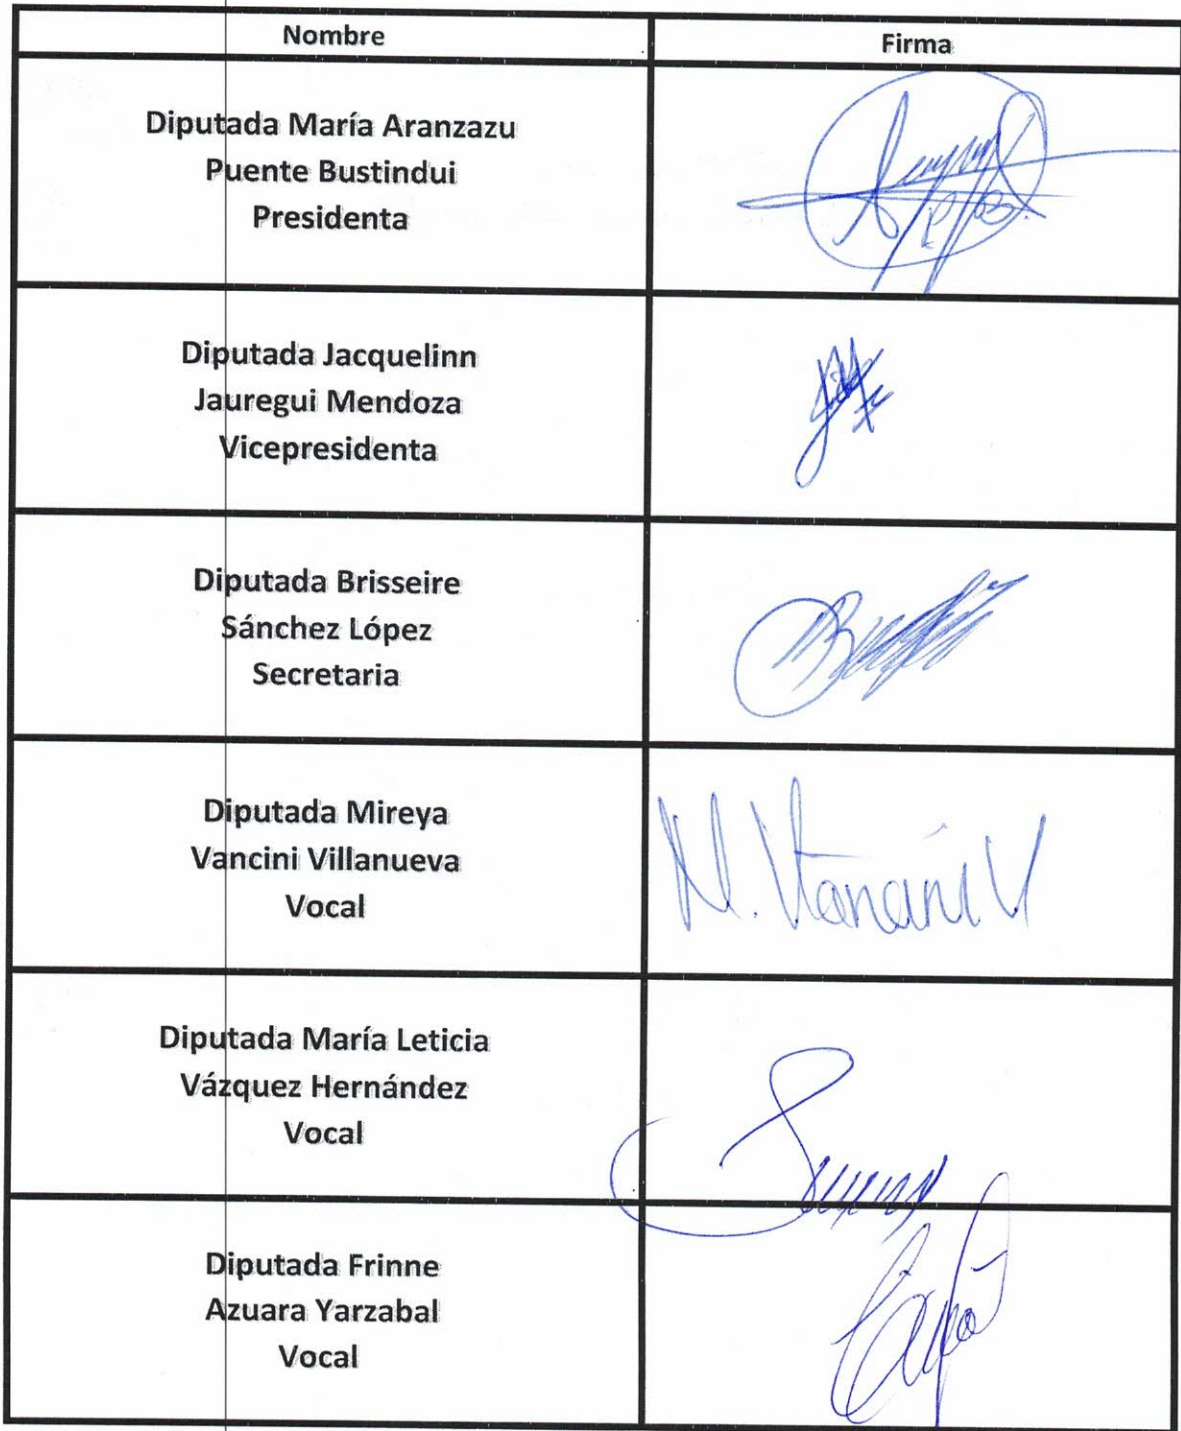 Nombre
Firma
Diputada María Aranzazu
Puente Bustindui
Presidenta
Diputada Jacquelinn
Jauregui Mendoza
Vicepresidenta
Diputada Brisseire
Sánchez López
Secretaria
Diputada Mireya
Vancini Villanueva
Vocal
M. Vancini V
Diputada María Leticia
Vázquez Hernández
Vocal
Diputada Frinne
Azuara Yarzabal
Vocal